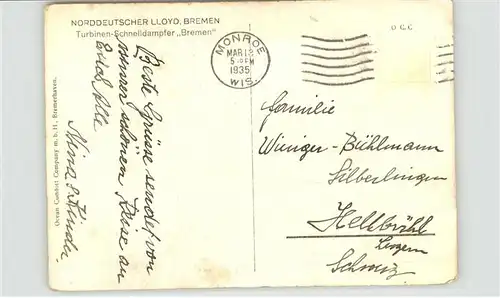 NORDDEUTSCHER LLOYD, BREMEN
Turbinen-Schnelldampfer „Bremen"
Ocean Comfort Company m. b. H., Bremerhaven.
Beste Grüsse sendet von
unserer schönen Reise an
Euch Alle
Nina & Kinder
MONROE
MAR 18
5 PM
1935
WIS.
Familie
Wieniger-Bühlmann
Silberlingen
Hellbühl
Luzern
Schweiz